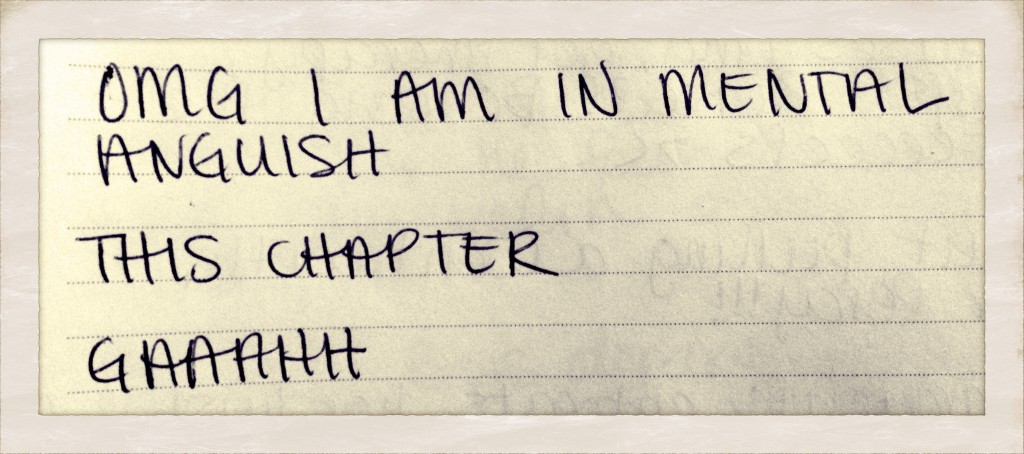 OMG I AM IN MENTAL
ANGUISH
THIS CHAPTER
GAAAHH